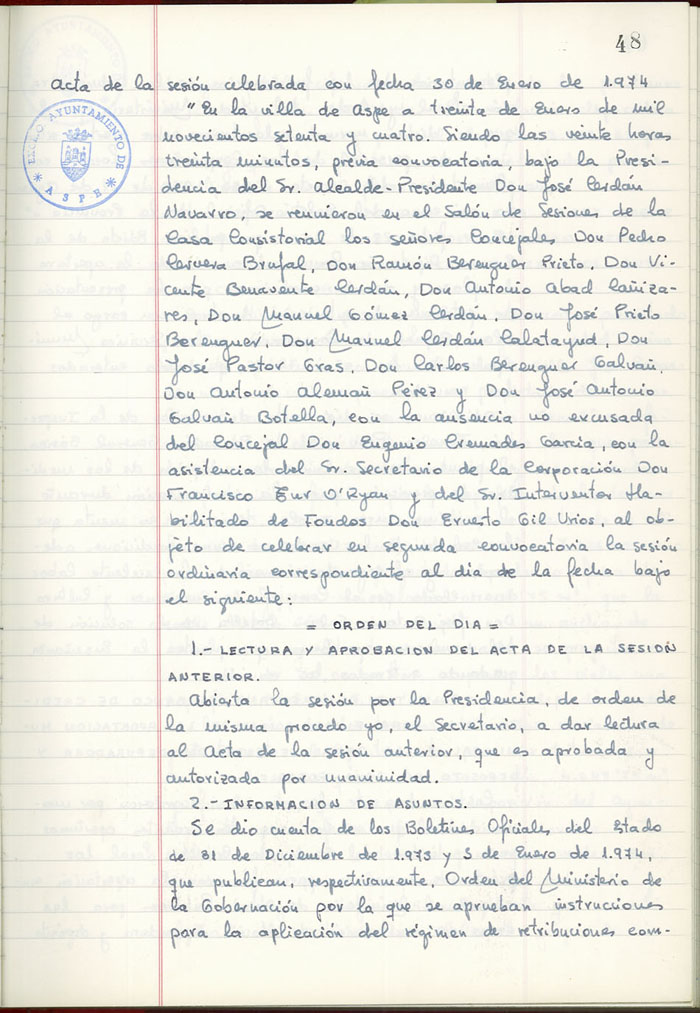 48
acta de la sesión celebrada con fecha 30 de Enero de 1.974
EXCMO AYUNTAMIENTO DE
* ASPE *
"En la villa de Aspe a treinta de Enero de mil
novecientos setenta y cuatro. Siendo las veinte horas
treinta minutos, previa convocatoria, bajo la Presi-
dencia del Sr. Alcalde-Presidente Don José Cerdán
Navarro, se reunieron en el Salón de Sesiones de la
Casa Consistorial los señores Concejales Don Pedro
Cervera Brufal, Don Ramón Berenguer Prieto, Don Vi-
cente Benavente Cerdán, Don Antonio Abad Cañiza-
res, Don Manuel Gómez Cerdán, Don José Prieto
Berenguer, Don Manuel Cerdán Calatayud, Don
José Pastor Gras, Don Carlos Berenguer Galvañ,
Don Antonio Alemañ Pérez y Don José Antonio
Galvañ Botella, con la ausencia no excusada
del Concejal Don Eugenio Cremades Garcia, con la
asistencia del Sr. Secretario de la Corporación Don
Francisco Eur O'Ryan y del Sr. Interventor Ha-
bilitado de Fondos Don Ernesto Gil Urios, al ob-
jeto de celebrar en segunda convocatoria la sesión
ordinaria correspondiente al dia de la fecha bajo
el siguiente:
= ORDEN DEL DIA =
1.- LECTURA Y APROBACION DEL ACTA DE LA SESION
ANTERIOR.
Abierta la sesión por la Presidencia, de orden de
la misma procedo yo, el Secretario, a dar lectura
al Acta de la sesión anterior, que es aprobada y
autorizada por unanimidad.
2.- INFORMACION DE ASUNTOS.
Se dio cuenta de los Boletines Oficiales del Estado
de 31 de Diciembre de 1.973 y 5 de Enero de 1.974,
que publican, respectivamente, Orden del Ministerio de
la Gobernación por la que se aprueban instrucciones
para la aplicación del régimen de retribuciones com-